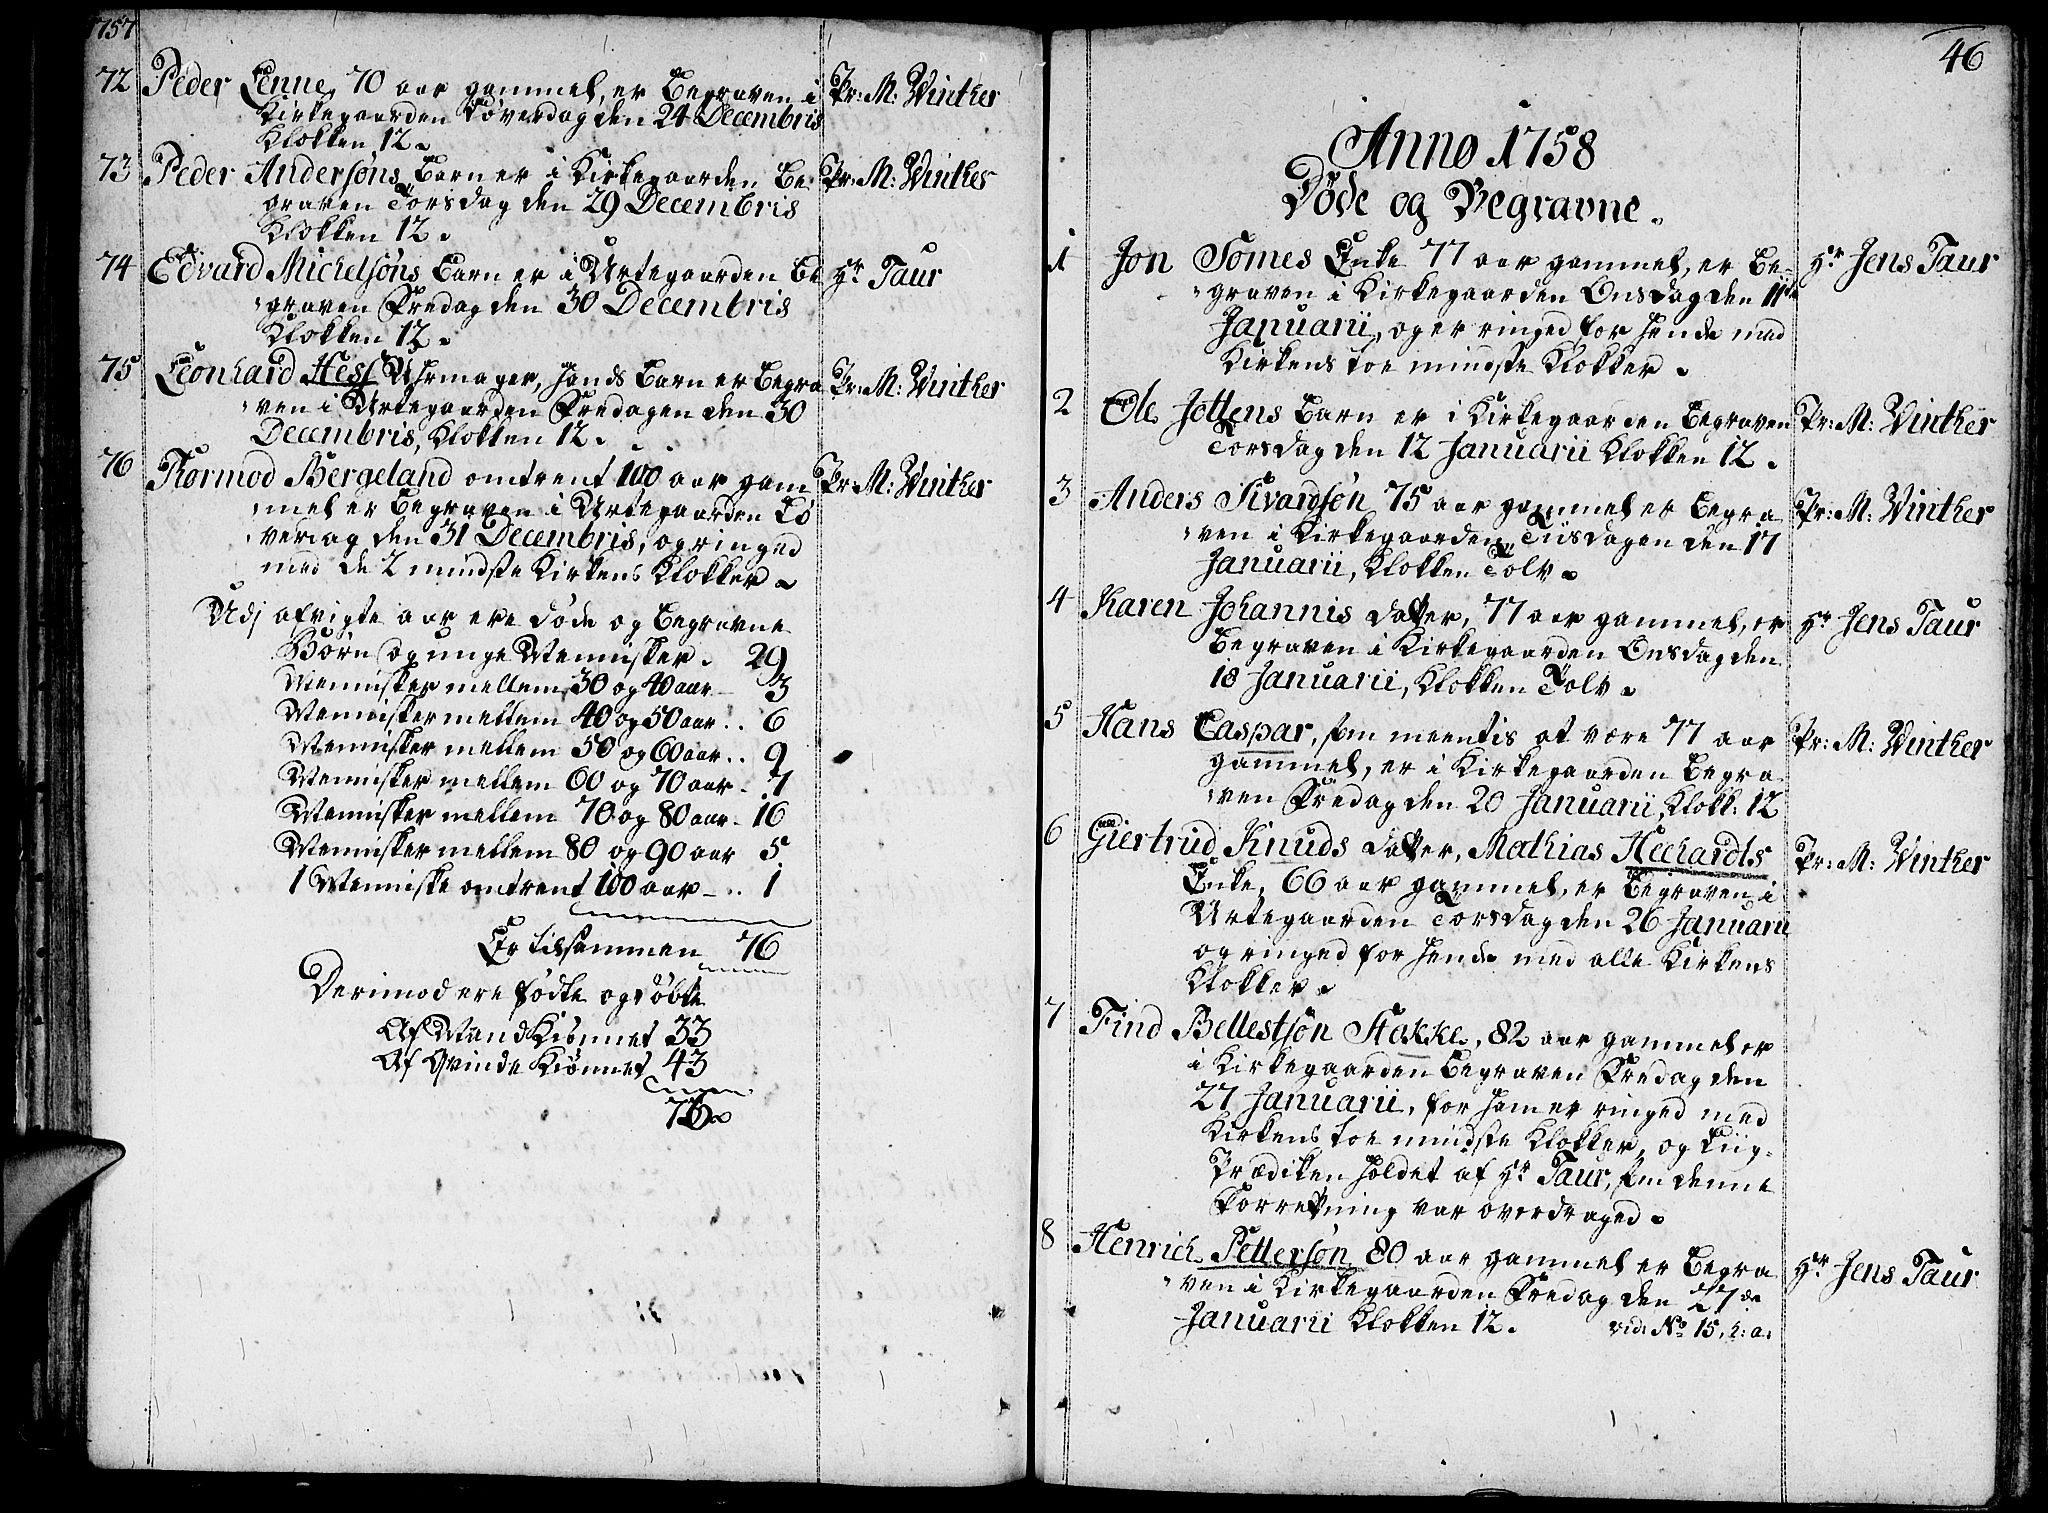 1757
72 Peder Lenne, 70 aar gammel, er Begraven i Pr: M: Winther
Kirkegaarden Løverdag den 24 Decembris
Klokken 12.
73 Peder Andersøns Barn er i Kirkegaarden Be- Pr: M: Winther
graven Torsdag den 29 Decembris
Klokken 12.
74 Edvard Michelsøns Barn er i Urtegaarden Be Hr Taur
graven Fredag den 30 Decembris
Klokken 12.
75 Leonhard Hess Uhrmager, hands Barn er Begra Pr: M: Winther
ven i Urtegaarden Fredagen den 30
Decembris, Klokken 12.
76 Tormod Bergeland omtrent 100 aar gam Pr: M: Winther
mel er Begraven i Urtegaarden Lø
verdag den 31 Decembris, og ringed
med de 2 mindste Kirkens Klokker.
Udj afvigte aar ere døde og Begravne
Børn og unge Mennisker. 29
Mennisker mellem 30 og 40 aar 3
Mennisker mellem 40 og 50 aar .. 6
Mennisker mellem 50 og 60 aar .. 9
Mennisker mellem 60 og 70 aar - 7
Mennisker mellem 70 og 80 aar - 16
Mennisker mellem 80 og 90 aar 5
1 Menniske omtrent 100 aar - .. 1
Er tilsammen 76
Derimod ere fødte og døbte
Af Mand Kiønnet 33
Af Qvinde Kiønnet 43
76
46
Anno 1758
Døde og Begravne.
1 Jon Tomes Enke 77 aar gammel, er Be- Hr Jens Taur
graven i Kirkegaarden Onsdag den 11te
Januarii, og er ringed for hende med
Kirkens toe mindste Klokker.
2 Ole Jottens Barn er i Kirkegaarden Begraven Pr: M: Winther
Torsdag den 12 Januarii Klokken 12.
3 Anders Sivardsøn 75 aar gammel er Begra Pr: M: Winther
ven i Kirkegaarden Tiisdagen den 17
Januarii, Klokken Tolv.
4 Karen Johannis datter, 77 aar gammel, er Hr Jens Taur
Begraven i Kirkegaarden Onsdag den
18 Januarii, Klokken Tolv.
5 Hans Caspar, som meentis at være 77 aar Pr: M: Winther
gammel, er i Kirkegaarden Begra
ven Fredag den 20 Januarii, Klokk: 12
6 Giertrud Knuds datter, Mathias Heehardts Pr: M: Winther
Enke, 66 aar gammel, er Begraven i
Urtegaarden Torsdag den 26 Januarii
og ringed for hende med alle Kirkens
Klokker.
7 Find Bellestsøn Stakke, 82 aar gammel er
i Kirkegaarden Begraven Fredag den
27 Januarii, for ham er ringed med
Kirkens toe mindste Klokker, og Liig-
Prædiken holdet af Hr Taur, som denne
Forretning var overdraged.
8 Henrich Pettersøn 80 aar gammel er Begra Hr Jens Taur
ven i Kirkegaarden Fredag den 27de
Januarii Klokken 12. vid: No 15, h: a: